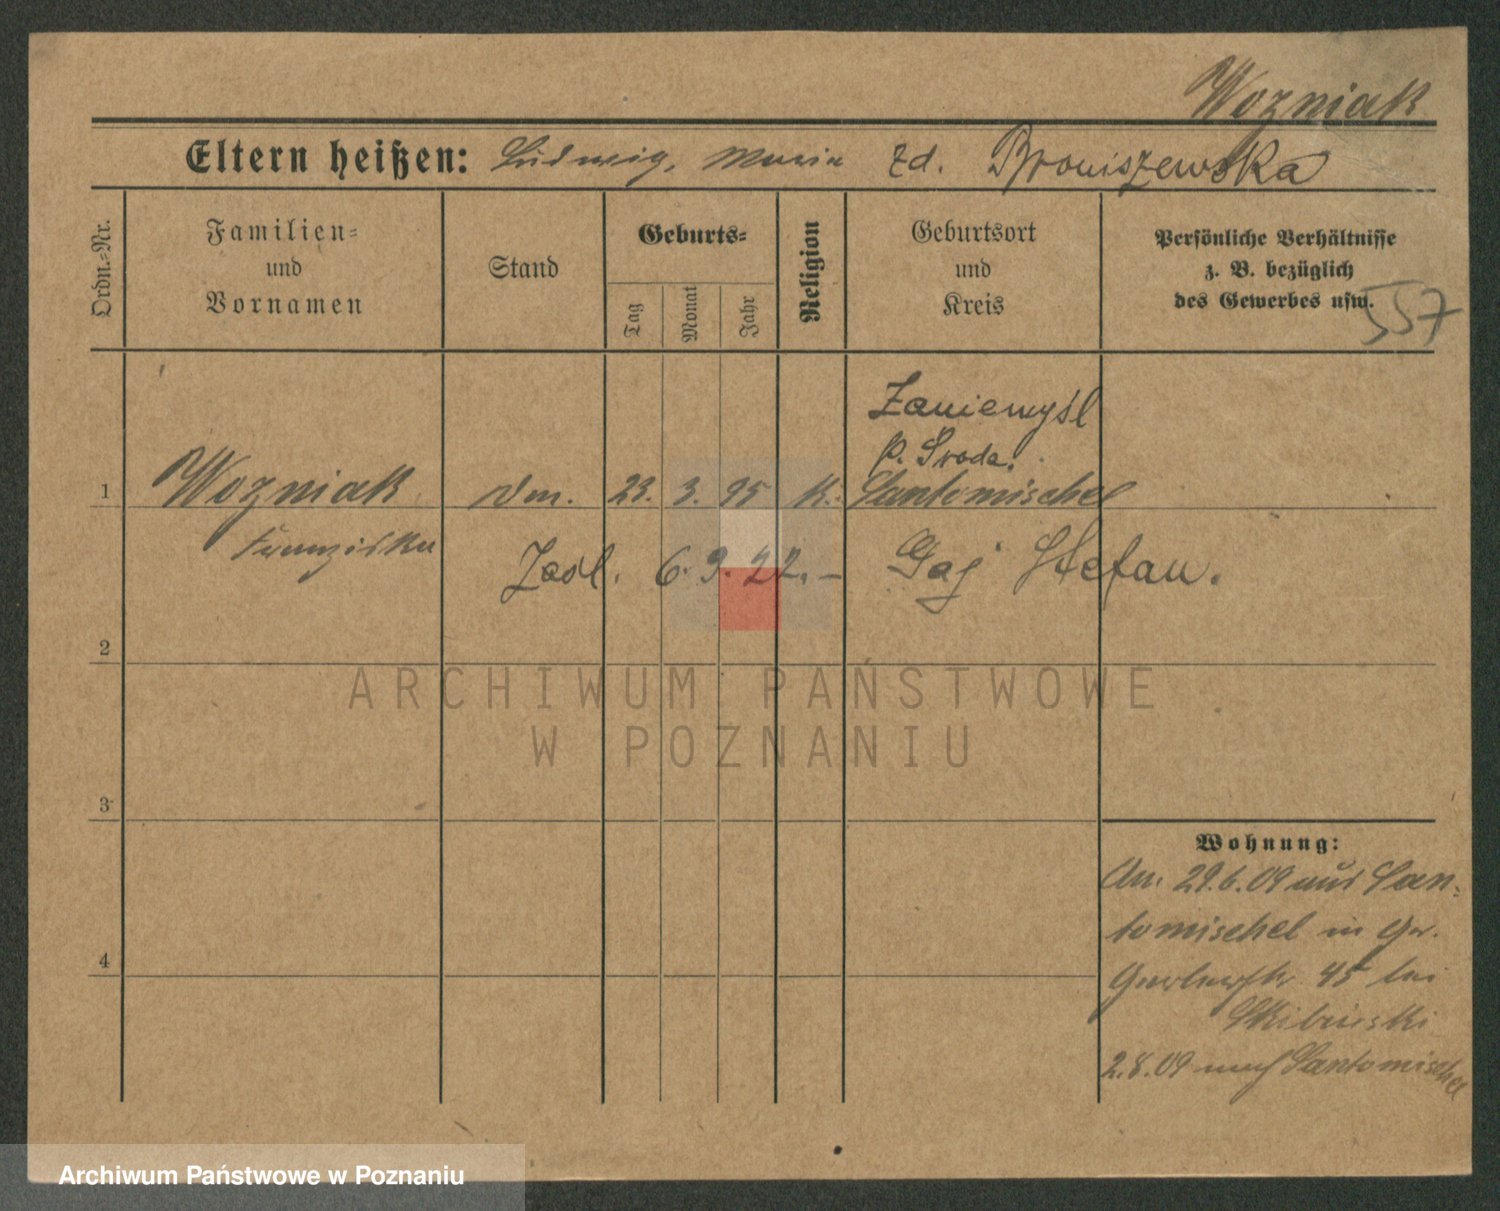 Wozniak
Eltern heißen: Ludwig, Maria zd. Broniszewska
Ordn.-Nr.
Familien- und Vornamen
Stand
Geburts-
Tag
Monat
Jahr
Religion
Geburtsort und Kreis
Persönliche Verhältnisse
z. B. bezüglich
des Gewerbes usw.
557
Zaniemyśl
p. Środa.
1 Wozniak 23. 3. 95 K. Santomischel
Franziska
Zaśl. 6. 9. 22. – Gaj Stefan.
2
3
4
Wohnung:
An. 29.6.09 aus San-
tomischel in
45 bei
Skibinski
2.8.09 nach Santomischel
ARCHIWUM PAŃSTWOWE
W POZNANIU
Archiwum Państwowe w Poznaniu